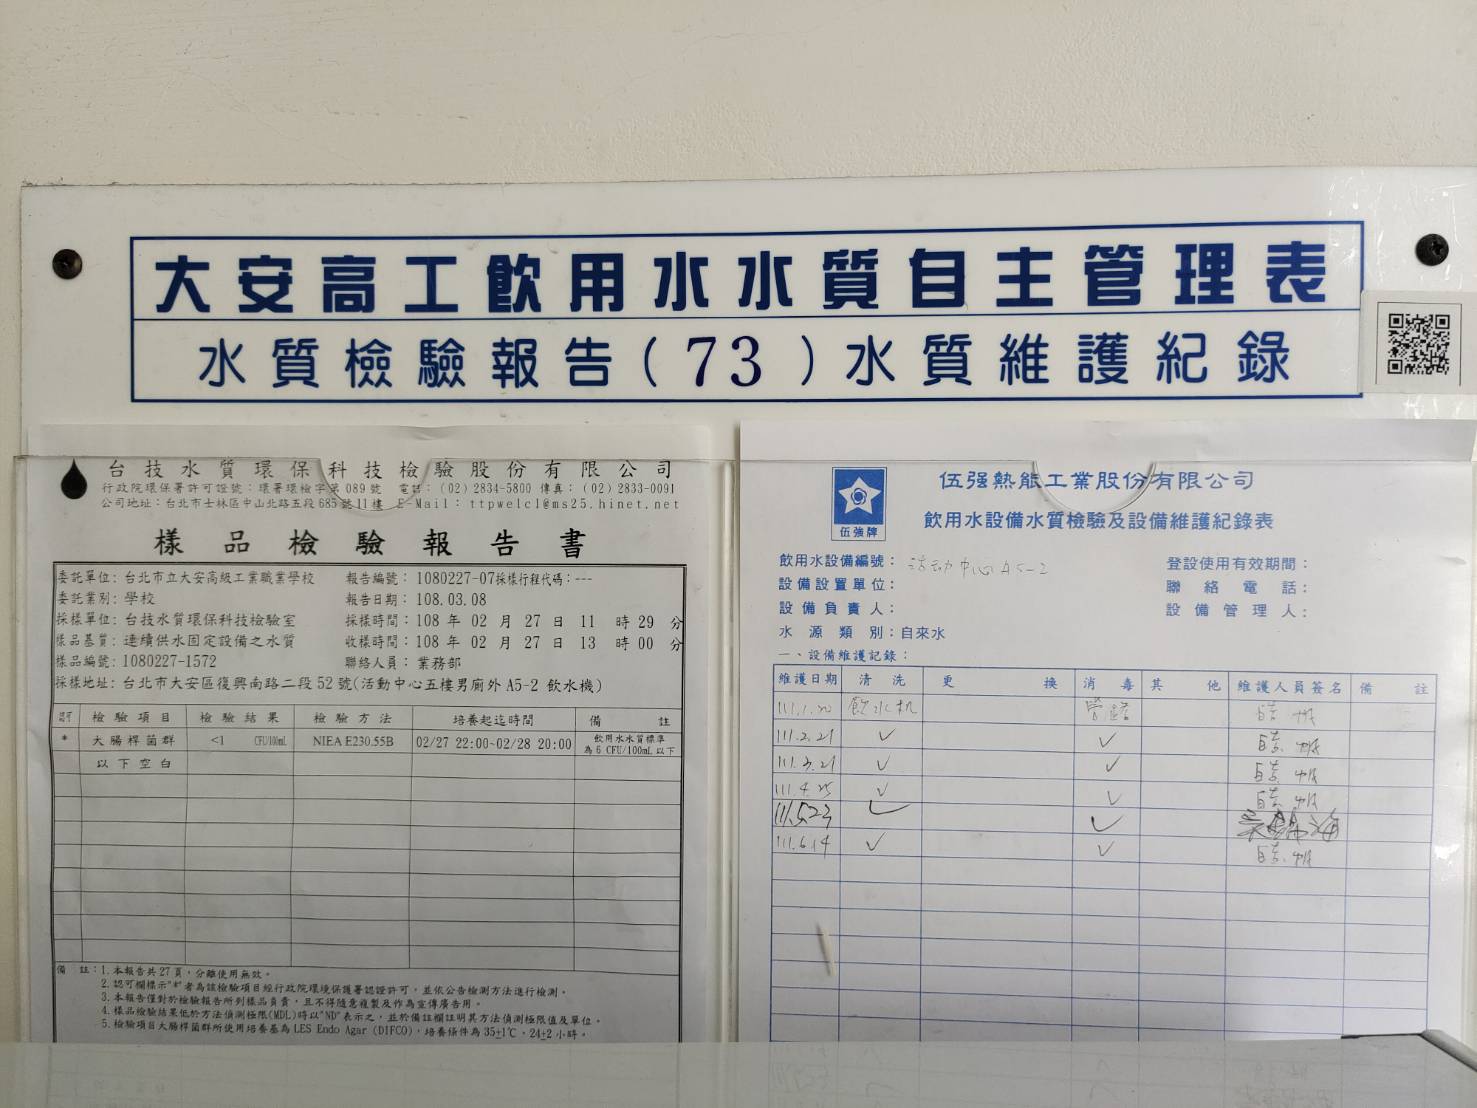 大安高工飲用水水質自主管理表
水質檢驗報告(73)水質維護紀錄
台技水質環保科技檢驗股份有限公司
行政院環保署許可證號：環署環檢字第089號 電話：(02)2834-5800 傳真：(02)2833-0091
公司地址：台北市士林區中山北路五段685號11樓 E-Mail：ttpwelcl@ms25.hinet.net
樣品檢驗報告書
委託單位：台北市立大安高級工業職業學校 報告編號：1080227-07採樣行程代碼：---
委託業別：學校 報告日期：108.03.08
採樣單位：台技水質環保科技檢驗室 採樣時間：108 年 02 月 27 日 11 時 29 分
樣品基質：連續供水固定設備之水質 收樣時間：108 年 02 月 27 日 13 時 00 分
樣品編號：1080227-1572 聯絡人員：業務部
採樣地址：台北市大安區復興南路二段52號(活動中心五樓男廁外 A5-2 飲水機)
認可 檢驗項目 檢驗結果 檢驗方法 培養起迄時間 備註
* 大腸桿菌群 <1 CFU/100mL NIEA E230.55B 02/27 22:00~02/28 20:00 飲用水水質標準
為 6 CFU/100mL 以下
以下空白
備 註：1.本報告共27頁，分離使用無效。
2.認可欄標示"*"者為該檢驗項目經行政院環境保護署認證許可，並依公告檢測方法進行檢測。
3.本報告僅對於檢驗報告所列樣品負責，且不得隨意複製及作為宣傳廣告用。
4.樣品檢驗結果低於方法偵測極限(MDL)時以"ND"表示之，並於備註欄註明其方法偵測極限值及單位。
5.檢驗項目大腸桿菌群所使用培養基為LES Endo Agar (DIFCO)，培養條件為 35±1℃，24±2 小時。
伍強牌
伍强熱能工業股份有限公司
飲用水設備水質檢驗及設備維護紀錄表
飲用水設備編號：活动中心A5-2 登設使用有效期間：
設備設置單位： 聯絡電話：
設備負責人： 設備管理人：
水源類別：自來水
一、設備維護記錄：
維護日期 清洗 更換 消毒 其他 維護人員簽名 備註
111.1.20 飲水机 管路
111.2.21 ✓ ✓
111.3.21 ✓ ✓
111.4.25 ✓ ✓
111.5.23 ✓ ✓
111.6.14 ✓ ✓